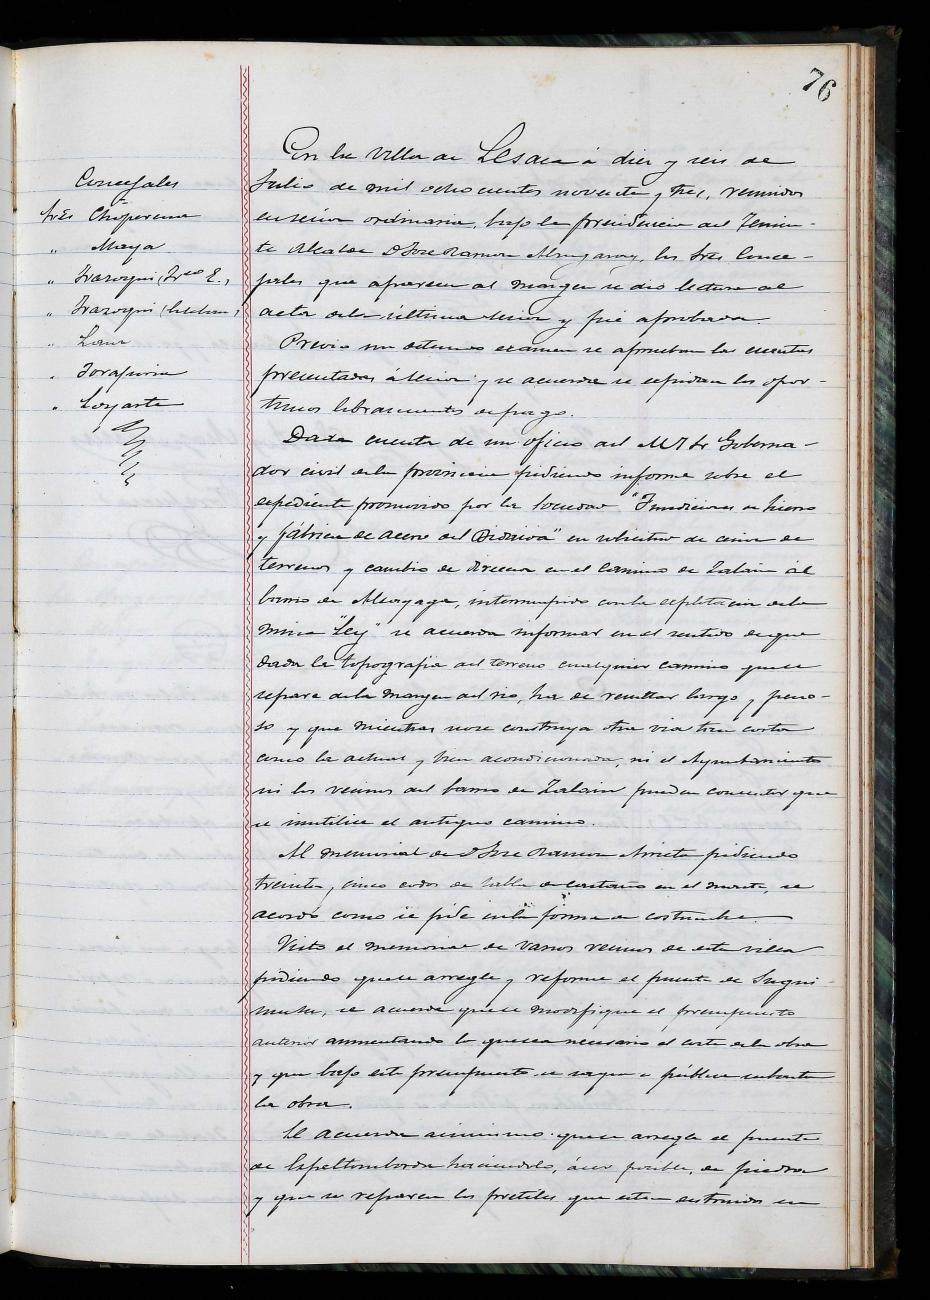 76
Concejales
Sres Choperena
" Maya
" Irazoqui (Frco E.)
" Irazoqui (Esteban)
"
" Torajuria
" Loyarte
En la villa de Lesaca á diez y seis de
Julio de mil ochocientos noventa y tres, reunidos
en sesion ordinaria, bajo la presidencia del Tenien-
te Alcalde D José Ramon Almgaray, los Sres Conce-
jales que aparecen al margen se dio lectura al
acta de la última sesion y fué aprobada.
Previo un detenido examen se aprueban las cuentas
presentadas á sesion y se acuerda se expidan los opor-
tunos libramientos de pago.
Dada cuenta de un oficio del M I Sr Goberna-
dor civil de la provincia pidiendo informe sobre el
expediente promovido por la Sociedad "Fundiciones de hierro
y fábrica de acero del Bidasoa" en solicitud de cesion de
terrenos y cambio de direccion en el camino de Zalain al
barrio de Alcayaga, interrumpido con la esplotacion de la
mina "Ley" se acuerda informar en el sentido de que
dada la topografia del terreno cualquier camino que se
separe de la margen del rio, ha de resultar largo y peno-
so y que mientras no se construya otra via tan corta
como la actual y bien acondicionada, ni el Ayuntamiento
ni los vecinos del barrio de Zalain pueden consentir que
se inutilice el antiguo camino.
Al memorial de D José Ramon Arrieta pidiendo
treinta y cinco codos de tabla de castaño en el monte, se
acordó como se pide en la forma de costumbre.
Visto el memorial de varios vecinos de esta villa
pidiendo que se arregle y reforme el puente de
se acuerda que se modifique el presupuesto
anterior aumentando lo que sea necesario el coste de la obra
y que bajo este presupuesto se saque á pública subasta
la obra.
Se acuerda asimismo que se arregle el puente
de haciendolo, á ser posible, de piedra
y que se reparen los pretiles que estan destruidos en